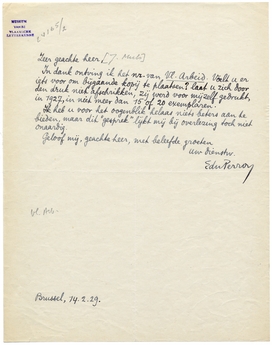 Zeer geachte heer,
In dank ontving ik het nr. van Vl. Arbeid. Voelt u er
iets voor om bijgaande kopij te plaatsen? Laat u zich door
den druk niet afschrikken; zij werd voor mijzelf gedrukt,
in 1927, in niet meer dan 15 of 20 exemplaren.
Ik heb u voor het oogenblik helaas niets beters aan te
bieden, maar dit "gesprek" lijkt mij bij overlezing toch niet
onaardig.
Geloof mij, geachte heer, met beleefde groeten
uw dienstw.
EduPerron
Vl. Arb.
Brussel, 14.2.29.